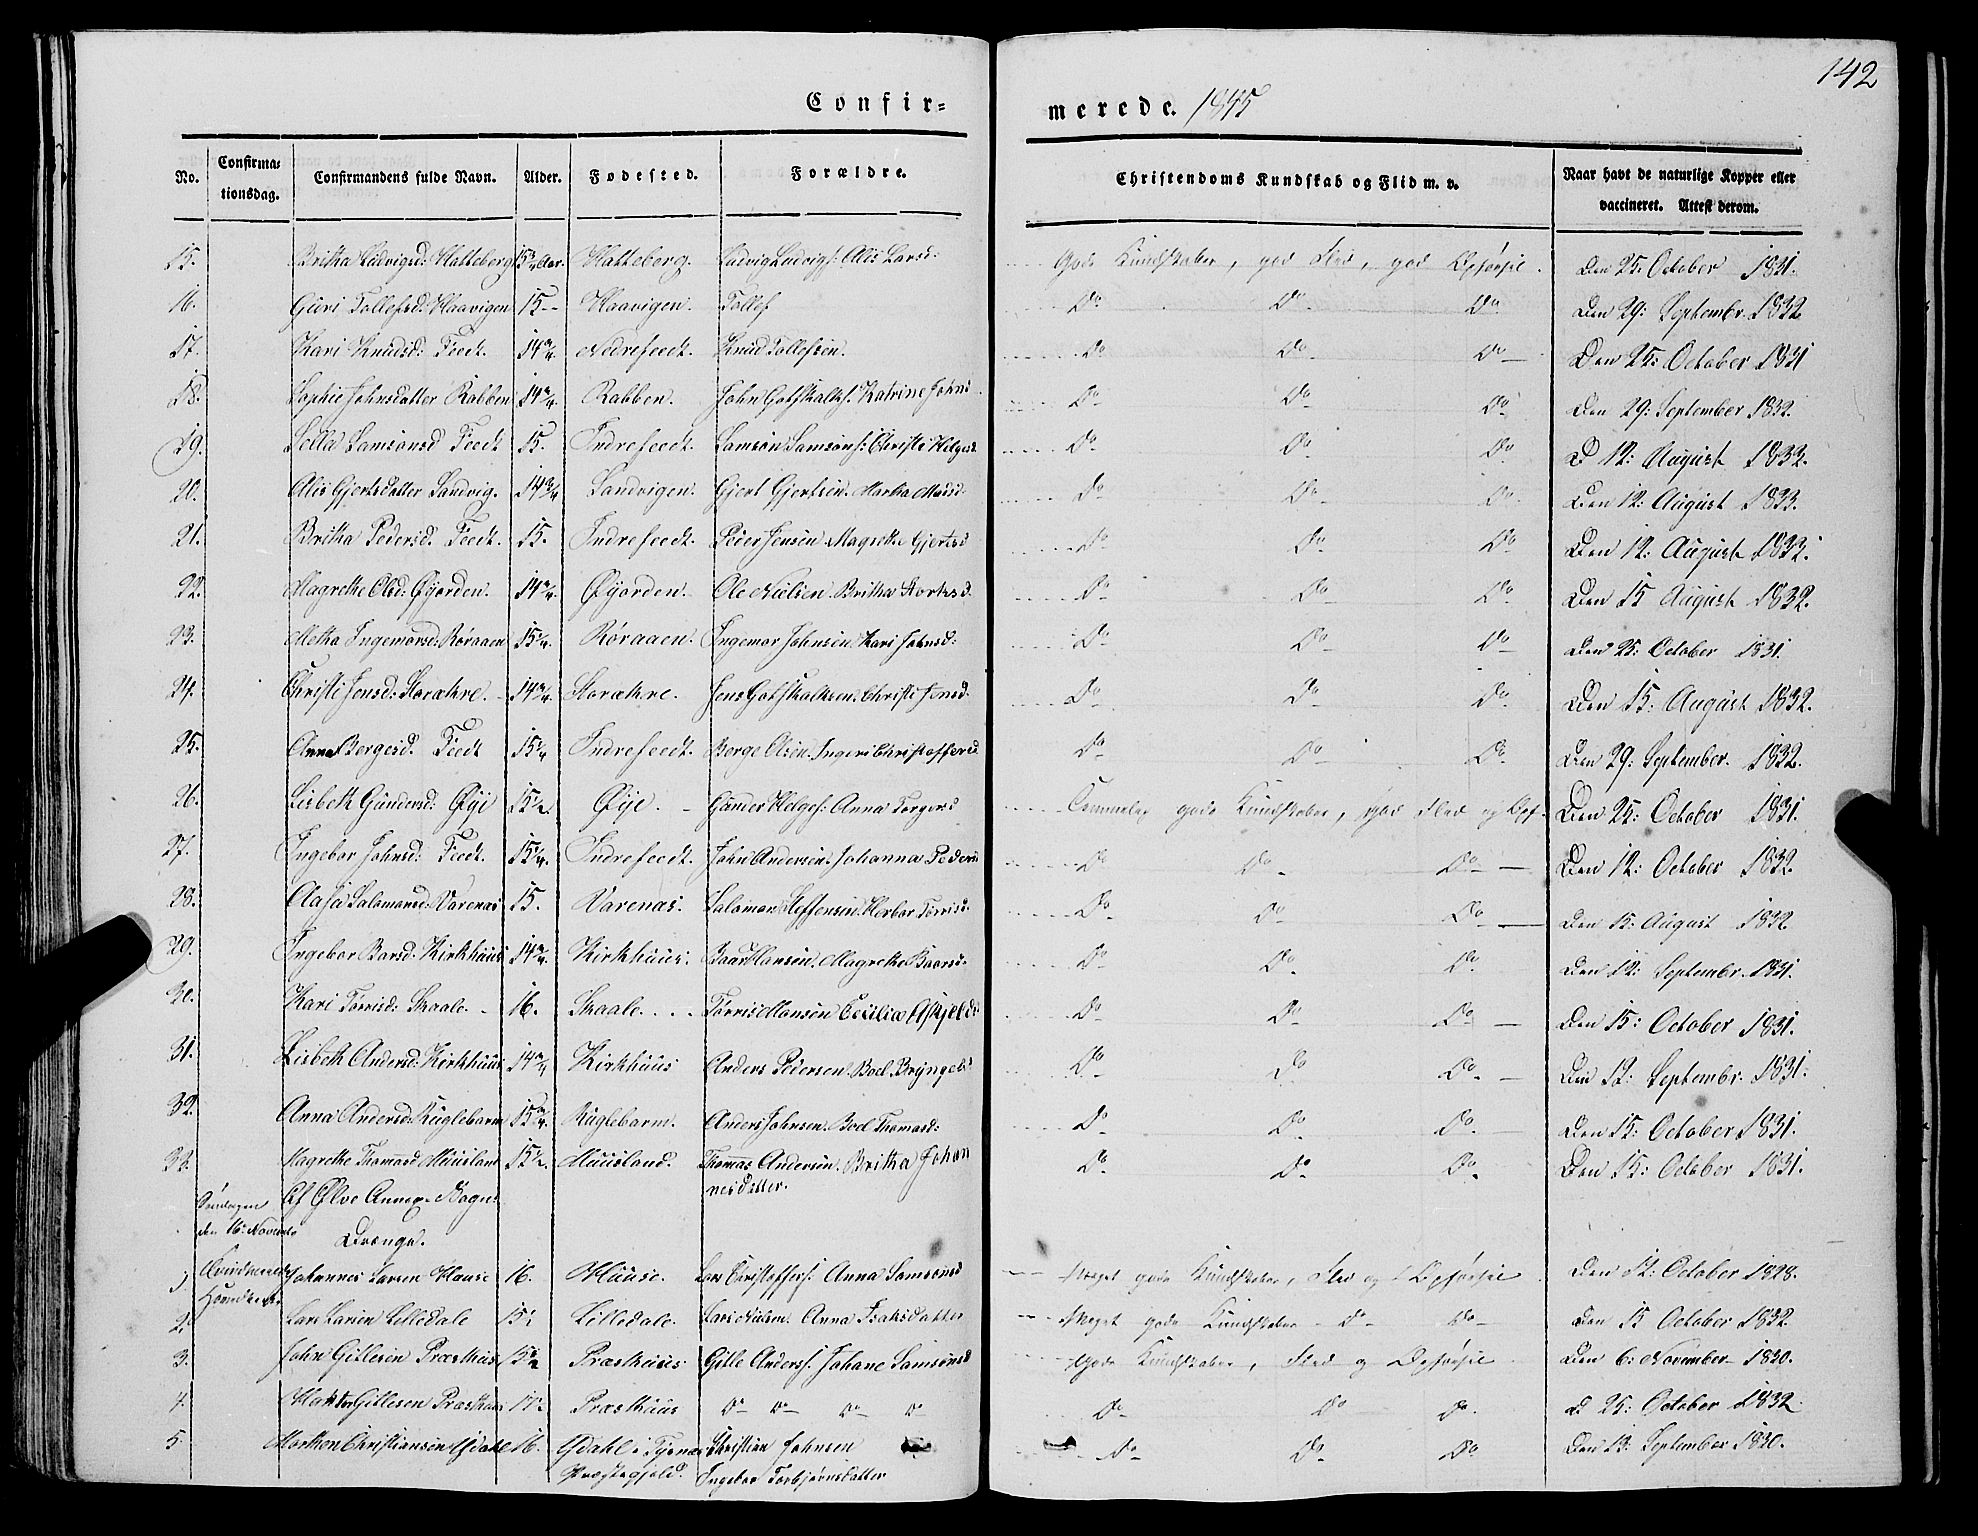 142
Confir-
merede. 1845
No.
Confirma-
tionsdag.
Confirmandens fulde Navn.
Alder.
Fødested.
Forældre.
Christendoms Kundskab og Flid m. v.
Naar havt de naturlige Kopper eller
vaccineret. Attest derom.
15. Britha Ludvigsd: Hatteberg 15 3/4 Aar. Hatteberg. Ludvig Ludvigs: Alis Larsd: Gode Kundskaber, god Flid, god Opførsel. Den 25: October 1831.
16. Guri Tollefsd: Haavigen 15 -- Haavigen. Tollef Do Do Do Den 29: Septembr. 1832
17. Kari Knudsd: Feedt. 14 3/4. Nedrefeedt. Knud Tollefsen. Do Do Do Den 25: October 1831
18. Sophie Johnsdatter Rabben 14 3/4. Rabben. John Gotskalks. Katrine Johnsd Do Do Do Den 29: September 1832.
19. Sella Samsonsd Feedt 15. Indrefeedt. Samson Samsons: Christi Helgesd Do Do Do D 12: August 1832.
20. Alis Gjertsdatter Sandvig. 14 3/4 Sandvigen. Gjert Gjertsen. Martha Madsd. Do Do Do Den 12: August 1833.
21. Britha Pedersd. Feedt. 15. Indrefeedt. Peder Jensen Magrethe Gjertsd Do Do Do Den 12: August 1832.
22. Magrethe Olsd: Øyjorden. 14 3/4. Øyjorden. Ole Nielsen. Britha Do Do Do Den 15 August 1832.
23. Metha Ingemorsd: Røraaen 15 1/4. Røraaen. Ingemor Johnsen. Kari Johnsd: Do Do Do Den 25: October 1831.
24. Christi Jensd: Storækre. 14 3/4. Storækre. Jens Gotskalksen. Christi Jensd. Do Do Do Den 15: August 1832.
25. Anna Bergesd. Feedt 15 1/4 Indrefeedt. Berge Olsen. Ingeri Christoffersd Do Do Do Den 29: September. 1832.
26. Lisbeth Gundersd: Øye 15 1/2. Øye. Gunder Helges: Anna Torgersd Temmelig gode Kundskaber, god Flid og Opf. Den 25: October 1831.
27. Ingebor Johnsd: Feedt. 15 1/4. Indrefeedt. John Andersen. Johanna Pedersd Do Do Do Den 12: October 1832.
28. Salamonsd: Varenæs 15. Varenæs. Salamon Steffensen. Herbor Tørrisd. Do Do Do Den 15: August 1832.
29. Ingebor Barsd. Kirkhuus 14 3/4. Kirkhuus. Baar Hansen. Magrethe Baarsd. Do Do Do Den 12: Septembr. 1831.
30. Kari Tørrisd: Skaale. 16. Skaale. Tørris Monsen Cecilia Askjelds Do Do Do Den 15: October 1831.
31. Lisbeth Andersd: Kirkhuus 14 3/4 Kirkhuus Anders Pedersen. Boel Bryngels Do Do Do Den 12: Septembr. 1831.
32. Anna Andersd: Kuglebarm 15 3/4. Kuglebarm. Anders Johnsen. Boel Thomasd: Do Do Do Den 15: October 1831.
33. Magrethe Thomasd Muusland 15 1/2. Muusland. Thomas Andersen. Britha Johan Do Do Do Den 15: October 1831.
nesdatter.
Søndagen Af Ølve Annex-Sogn
den 16: Novembr
Drænge.
Qvindherreds
1 Johannes Larsen Hause 16. Huuse. Lars Christoffers: Anna Samsonsd Meget gode Kundskaber, Flid og Opførsel Den 12: October 1828.
Hovedkirke
2. Lars Larsen Lilledale 15 1/2 Lilledale. Lars Nielsen. Anna Isaksdatter Meget gode Kundskaber Do Do Den 15 October 1832.
3. John Gillesen Præsthuus 15 1/2 Præsthuus. Gille Anders: Johane Samsonsd Gode Kundskaber, Flid og Opførsel Den 6: November 1830.
4. Gillesen Præsthuus Præsthuus Do Do Do Do Do Do Do d 25: October 1832.
5. Morthen Christiansen Ysdahl 16. Ysdahl i Tysnæs Christian Johnsen Do Do Do Den 13: September 1830.
Præstegjeld. Ingebor Torbjørnsdatter